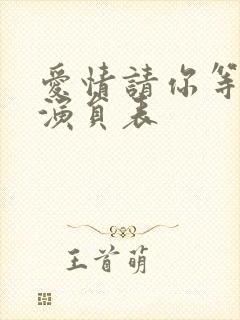 愛情請你等
演員表
王首萌